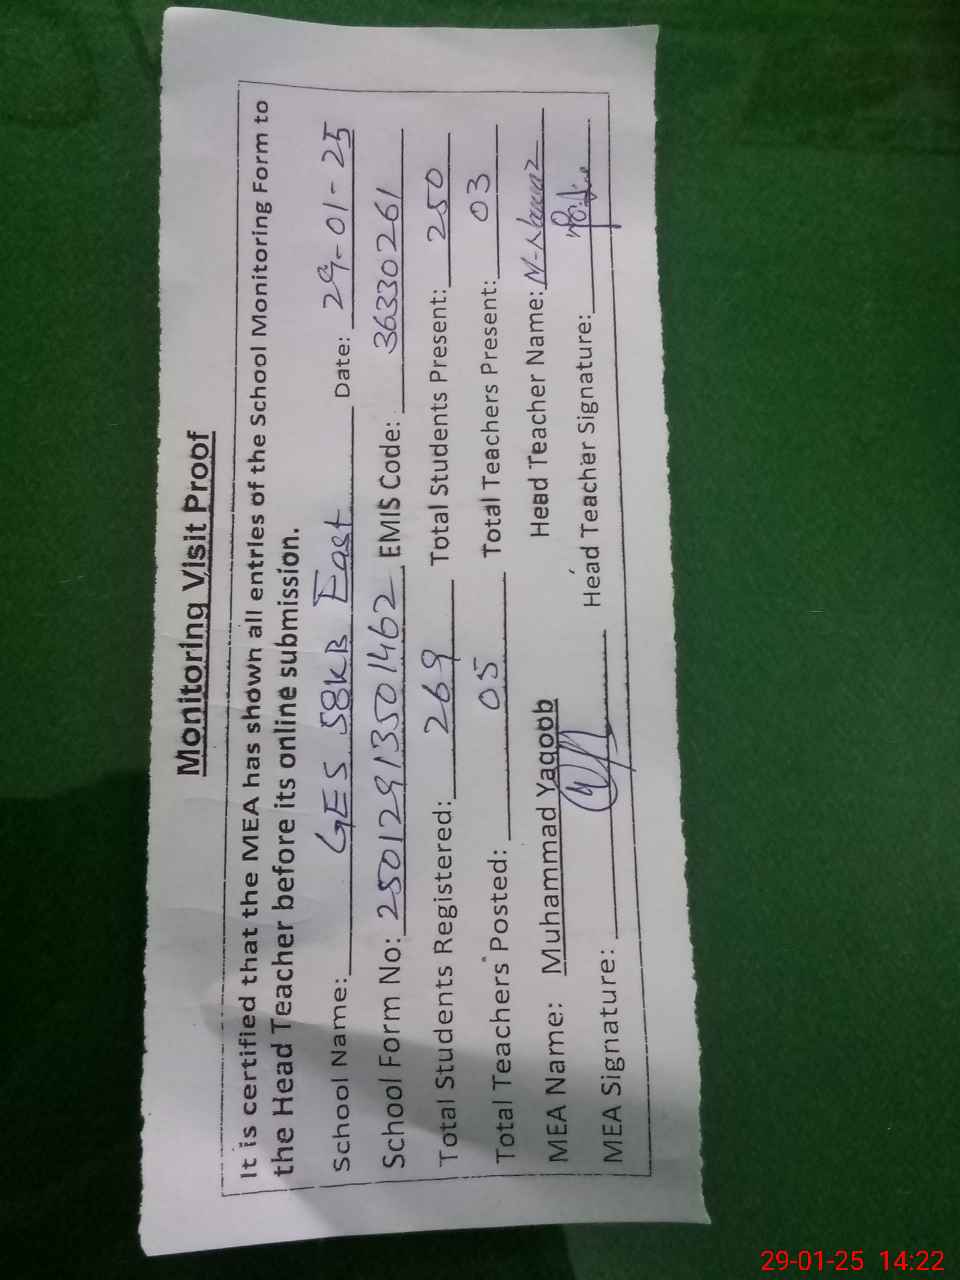 Monitoring Visit Proof
It is certified that the MEA has shown all entries of the School Monitoring Form to
the Head Teacher before its online submission.
School Name: GES 58KB East Date: 29-01-25
School Form No: 25012913501462 EMIS Code: 36330261
Total Students Registered: 269 Total Students Present: 250
Total Teachers Posted: 05 Total Teachers Present: 03
MEA Name: Muhammad Yaqoob Head Teacher Name: M-Nawaz
MEA Signature: Head Teacher Signature:
29-01-25 14:22